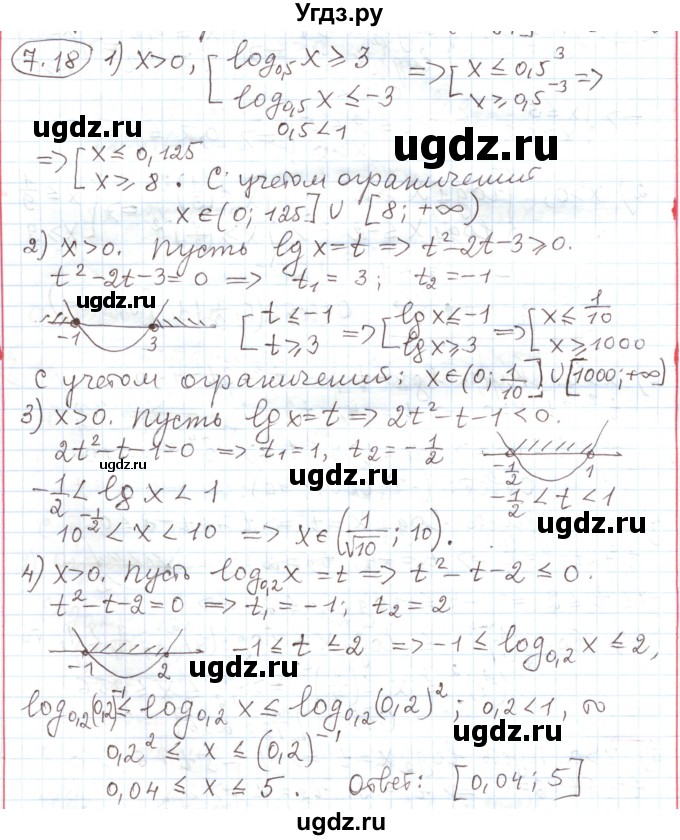 Угдз.ру
7.18 1) x>0, [ log₀,₅ x ≥ 3 => [ x ≤ 0,5³ =>
log₀,₅ x ≤ -3 x ≥ 0,5⁻³
0,5 < 1
ugdz.ru
ugdz.ru
=> [ x ≤ 0,125
x ≥ 8 . С учетом ограничений
x ∈ (0; 125] ∪ [8; +∞)
2) x>0. Пусть lg x = t => t² - 2t - 3 ≥ 0.
t² - 2t - 3 = 0 => t₁ = 3; t₂ = -1
ugdz.ru
-1 3 [ t ≤ -1 => [ lg x ≤ -1 => [ x ≤ 1/10
t ≥ 3 lg x ≥ 3 x ≥ 1000
С учетом ограничений: x ∈ (0; 1/10] ∪ [1000; +∞)
3) x>0. Пусть lg x = t => 2t² - t - 1 < 0.
2t² - t - 1 = 0 => t₁ = 1, t₂ = -1/2
ugdz.ru
ugdz.ru
-1/2 1
-1/2 < lg x < 1 -1/2 < t < 1
10^(-1/2) < x < 10 => x ∈ (1/√10; 10).
ugdz.ru
4) x>0. Пусть log₀,₂ x = t => t² - t - 2 ≤ 0.
t² - t - 2 = 0 => t₁ = -1; t₂ = 2
-1 2 -1 ≤ t ≤ 2 => -1 ≤ log₀,₂ x ≤ 2,
ugdz.ru
log₀,₂ (0,2)⁻¹ ≤ log₀,₂ x ≤ log₀,₂ (0,2)²; 0,2<1, то
0,2² ≤ x ≤ (0,2)⁻¹
ugdz.ru
0,04 ≤ x ≤ 5. Ответ: [0,04; 5]
ugdz.ru